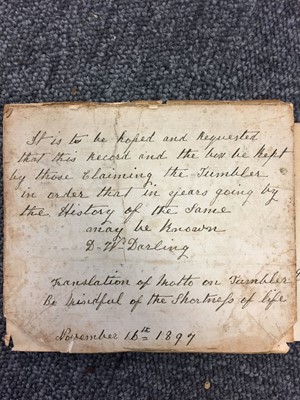 It is to be hoped and Requested
that this Record and the box be kept
by those Claiming the Tumbler
in order that in years going by
the History of the Same
may be Known
D. Wm Darling
Translation of Motto on Tumbler
Be Mindful of the Shortness of life
November 16th 1897